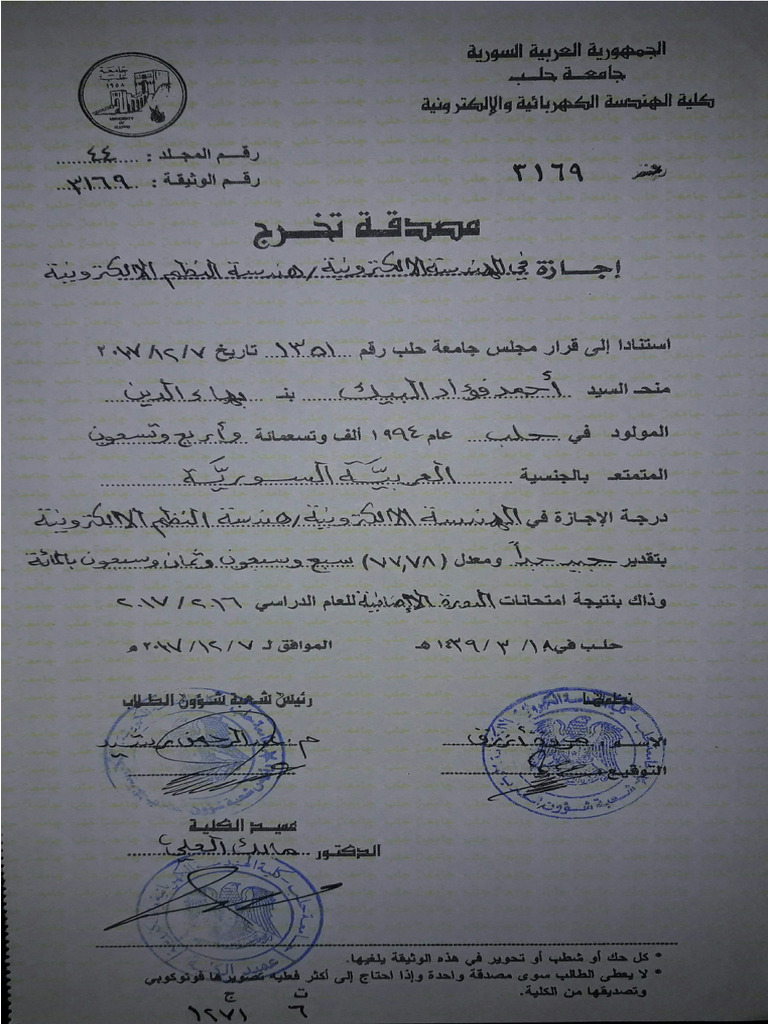 الجمهورية العربية السورية
جامعة حلب
كلية الهندسة الكهربائية والإلكترونية
جامعة حلب
١٩٥٨
UNIVERSITY OF ALEPPO
رقم المجلد : ٤٤
رقم الوثيقة : ٣١٦٩
٣١٦٩
مصدقة تخرج
إجازة في الهندسة الالكترونية/هندسة النظم الالكترونية
استنادا إلى قرار مجلس جامعة حلب رقم ١٣٥١ تاريخ ٢٠١٧/١٢/٧
منح السيد أحمد فؤاد البيك بن بهاء الدين
المولود في حلب عام ١٩٩٤ ألف وتسعمائة وأربع وتسعون
المتمتع بالجنسية العربية السورية
درجة الإجازة في الهندسة الالكترونية/هندسة النظم الالكترونية
بتقدير جيد جداً ومعدل (٧٧,٧٨) سبع وسبعون وثمان وسبعون بالمائة
وذلك بنتيجة امتحانات الدورة الإضافية للعام الدراسي ٢٠١٦ / ٢٠١٧
حلب في ١٨ / ٣ / ١٤٣٩ هـ الموافق لـ ٢٠١٧/١٢/٧ م
نظمها
رئيس شعبة شؤون الطلاب
الاسم
م. عبد الرحمن
التوقيع
عميد الكلية
الدكتور مالك العلي
عميد الكلية
• كل حك أو شطب أو تحوير في هذه الوثيقة يلغيها.
• لا يعطى الطالب سوى مصدقة واحدة وإذا احتاج إلى أكثر فعليه تصويرها فوتوكوبي
وتصديقها من الكلية.
ت ج
٦ ١٢٧١